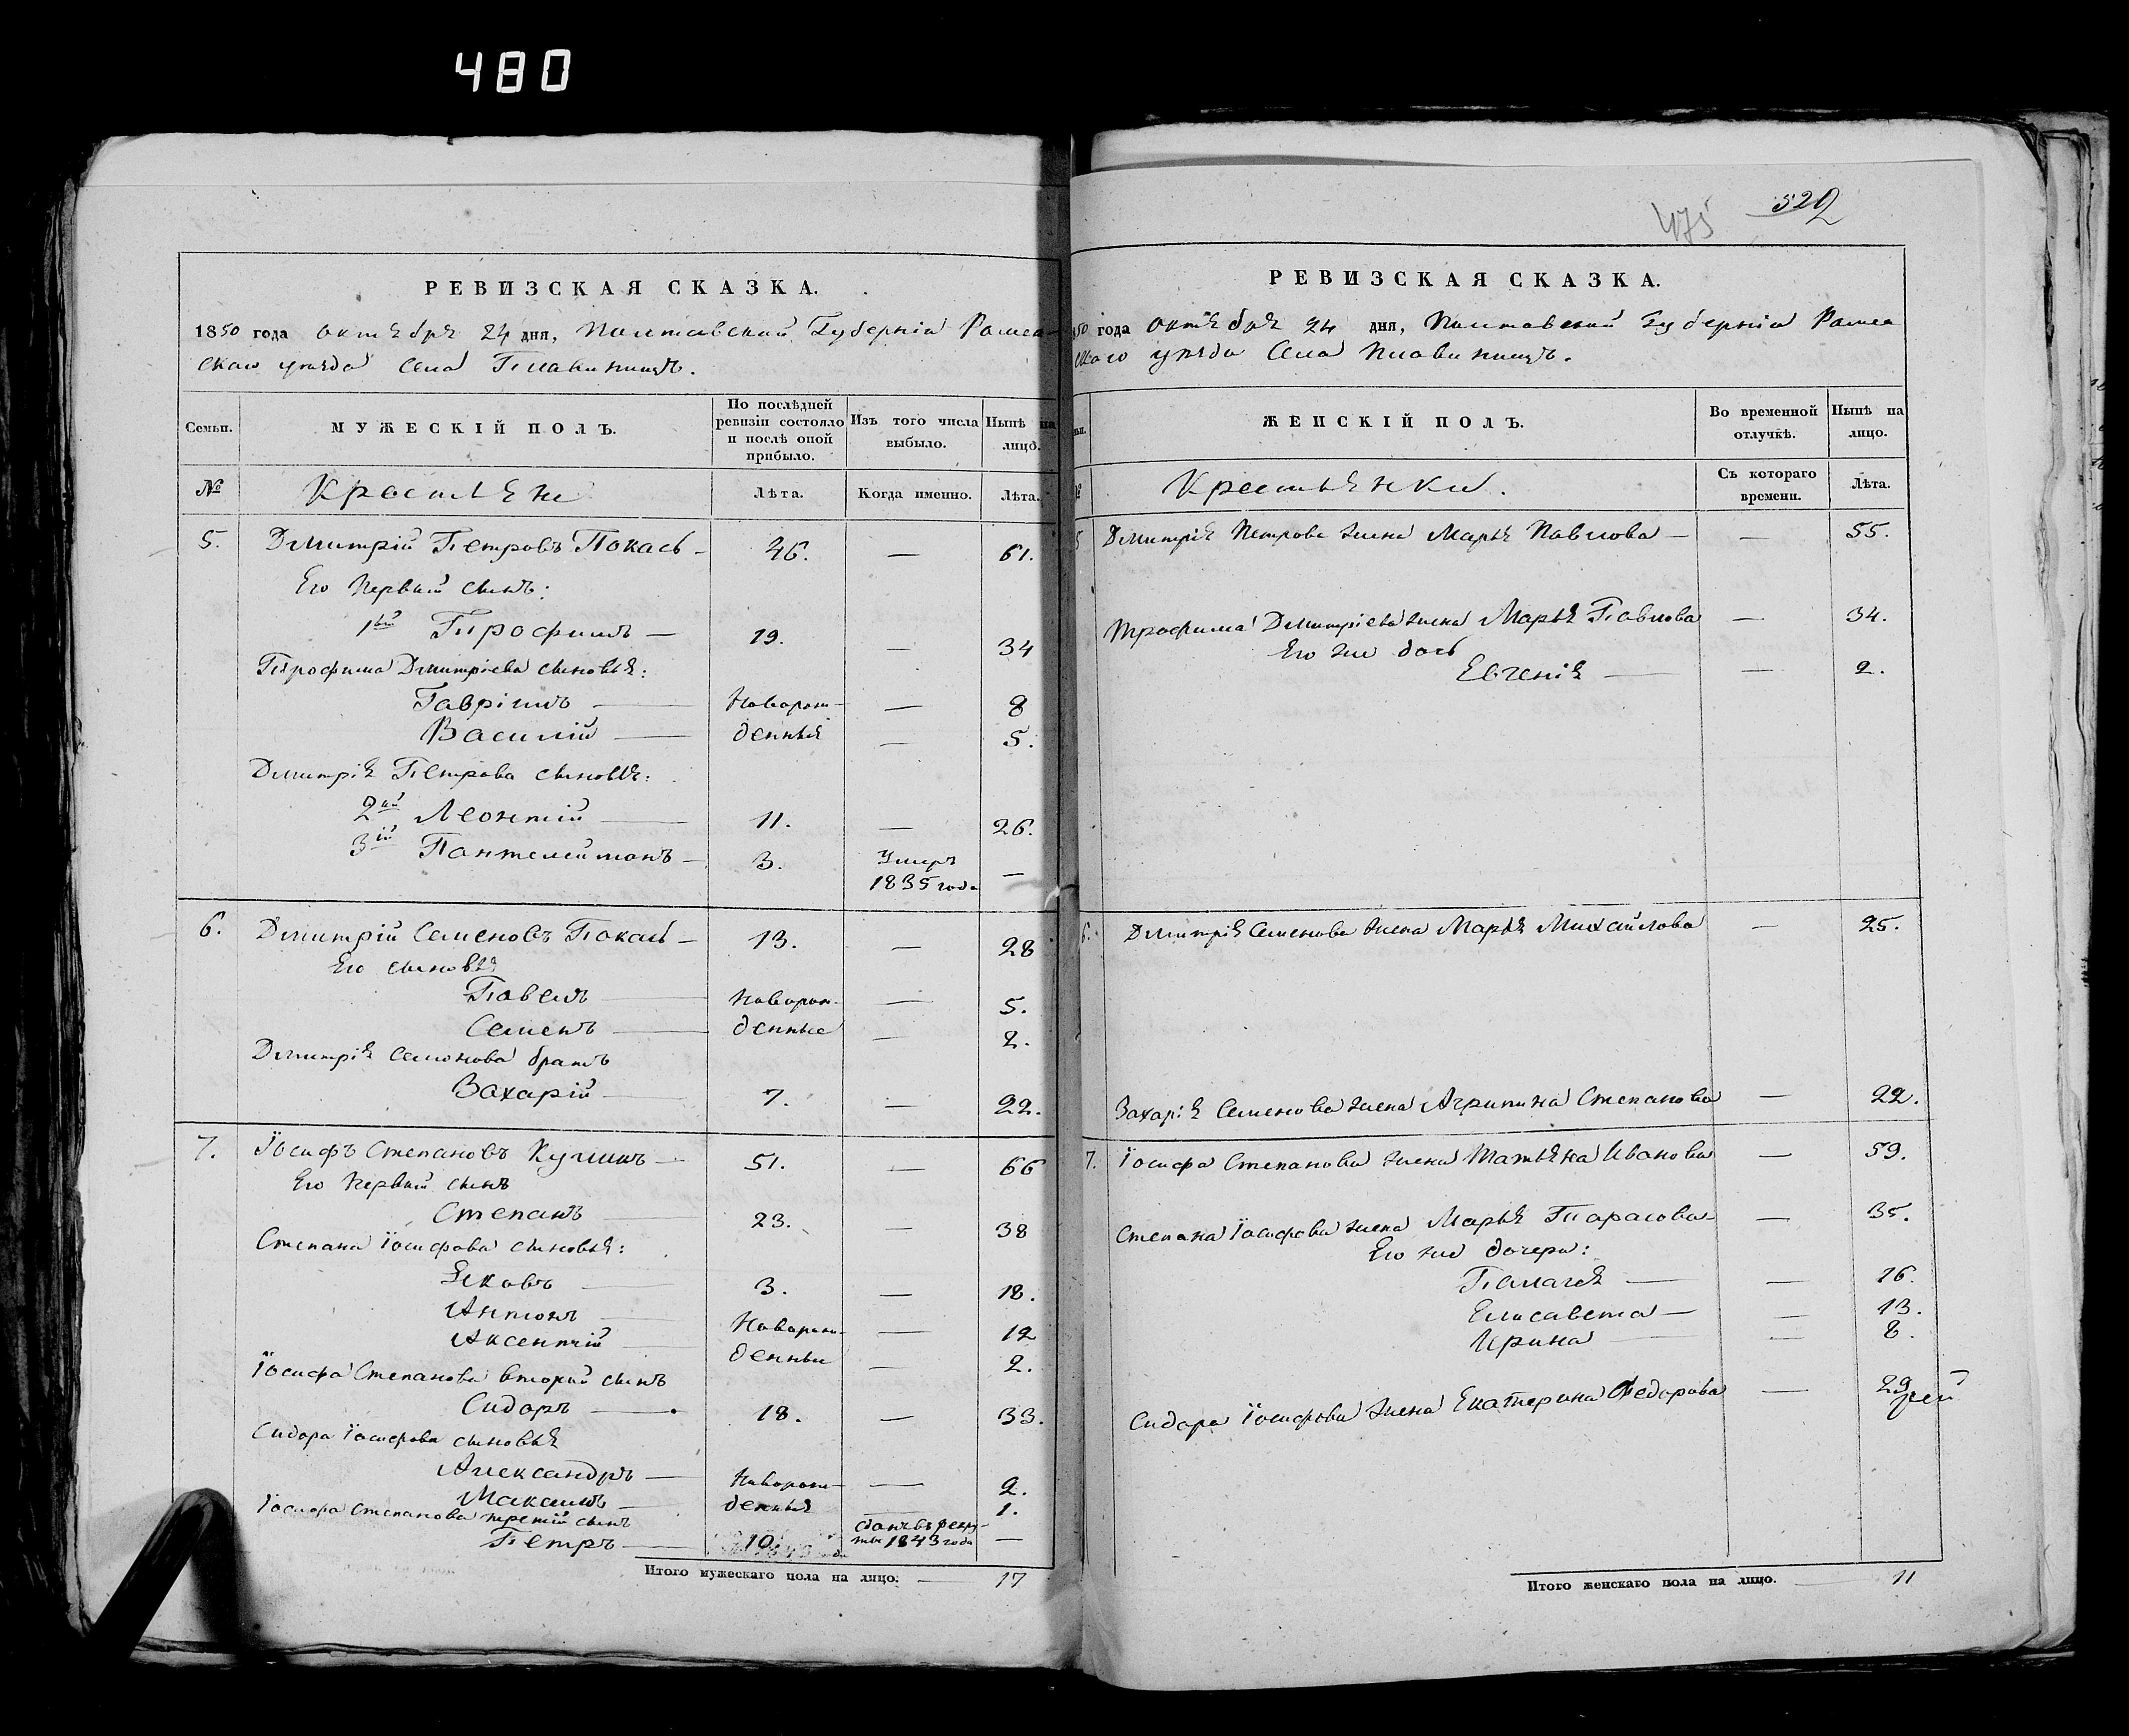 480
РЕВИЗСКАЯ СКАЗКА.
1850 года октября 24 дня, Полтавской Губерніи Ромен-
скаго уезда села Плавинищъ.
Семьи.
МУЖЕСКІЙ ПОЛЪ.
По послѣдней ревизіи состояло и послѣ оной прибыло.
Изъ того числа выбыло.
Нынѣ на лицо.
№ Крестьяне Лѣта. Когда именно. Лѣта.
5. Дмитрій Петровъ Покась — 46. — 61.
Его первый сынъ:
1ый Трофимъ — 19. — 34
Трофима Дмитріева сыновья:
Гавріилъ — Новорож- — 8
Василій — денныя — 5.
Дмитрія Петрова сыновья:
2ий Леонтій — 11. — 26.
3ій Пантелеймонъ — 3. Умеръ 1835 года —
6. Дмитрій Семеновъ Покась — 13. — 28
Его сыновья
Павелъ — Новорож- — 5.
Семенъ — денные — 2.
Дмитрія Семонова братъ
Захарій — 7. — 22.
7. Іосифъ Степановъ — 51. — 66
Его первый сынъ
Степанъ — 23. — 38
Степана Іосифова сыновья:
Яковъ — 3. — 18.
Антонъ — Новорож- — 12
Аксентій — денныи — 2.
Іосифа Степанова вторый сынъ
Сидоръ — 18. — 33.
Сидора Іосифова сыновья
Александръ — Новорож- — 2.
Макаимъ — денныя — 1.
Іосифа Степанова третій сынъ
Петръ — 10. сданъ въ рекру- ты 1843 года —
Итого мужескаго пола на лицо. — 17
475 522
РЕВИЗСКАЯ СКАЗКА.
1850 года октября 24 дня, Полтавской Губерніи Ромен
скаго уезда Села Плавинищъ.
ЖЕНСКІЙ ПОЛЪ.
Во временной отлучкѣ.
Нынѣ на лицо.
№ Крестьянки. Съ котораго времени. Лѣта.
5 Дмитрія Петрова жена Марья Павлова — — 55.
Трофима Дмитріева жена Марья Павлова — 34.
Его же дочь
Евгенія — — 2.
6. Дмитрія Семенова жена Марья Михайлова — 25.
Захарія Семенова жена Агрипина Степанова — 22.
7. Іосифа Степанова жена Татьяна Иванова — 59.
Степана Іосифова жена Марья Тарасова — — 35.
Его же дочери:
Палагея — — 16.
Елисавета — — 13.
Ирина — — 8.
Сидора Іосифова жена Екатерина Федорова — 29
Итого женскаго пола на лицо. — 11